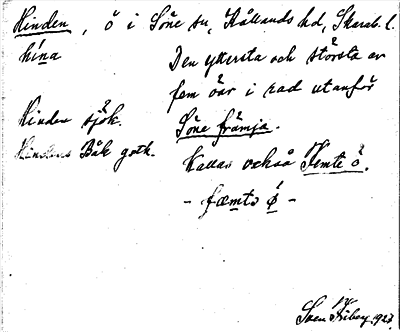 Hinden, ö i Söne sn, Kållands hd, Skarab. l.
hína Den yttersta och största av
fem öar i rad utanför
Hinden sjök. Söne främja.
Hindens Båk gotk. Kallas också Femte ö.
- fæmto ǿ -
Sven Friberg 1927